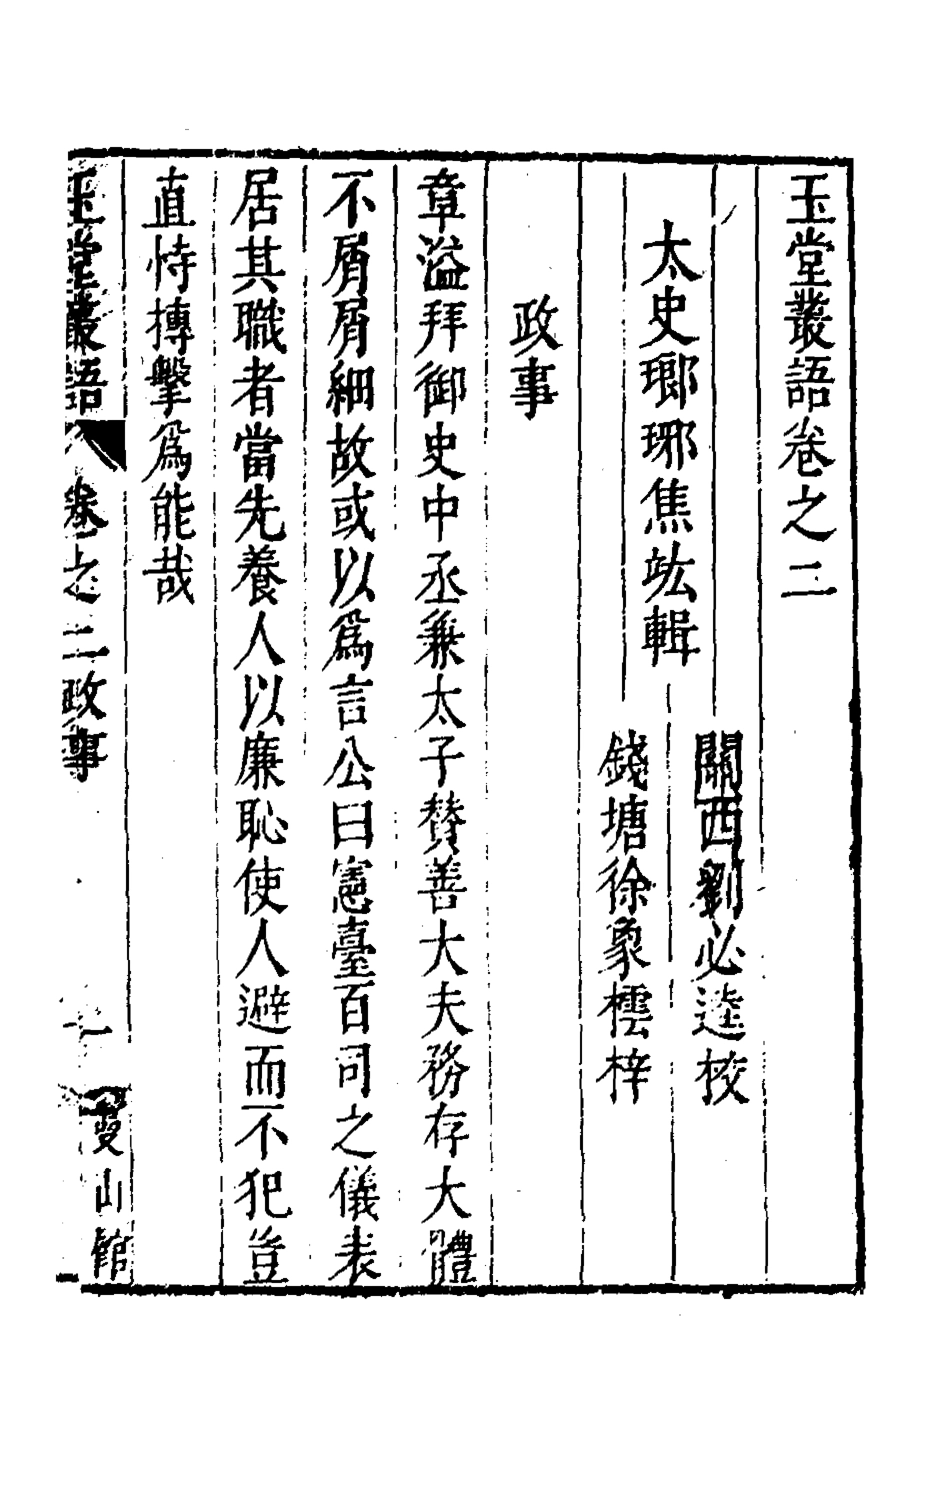 玉堂叢語卷之二
太史瑯琊焦竑輯
關西劉必達校
錢塘徐象橒梓
政事
章溢拜御史中丞兼太子贊善大夫務存大體
不屑屑細故或以爲言公曰憲臺百司之儀表
居其職者當先養人以廉恥使人避而不犯豈
直恃摶擊爲能哉
玉堂叢語
卷之二政事
一
山館